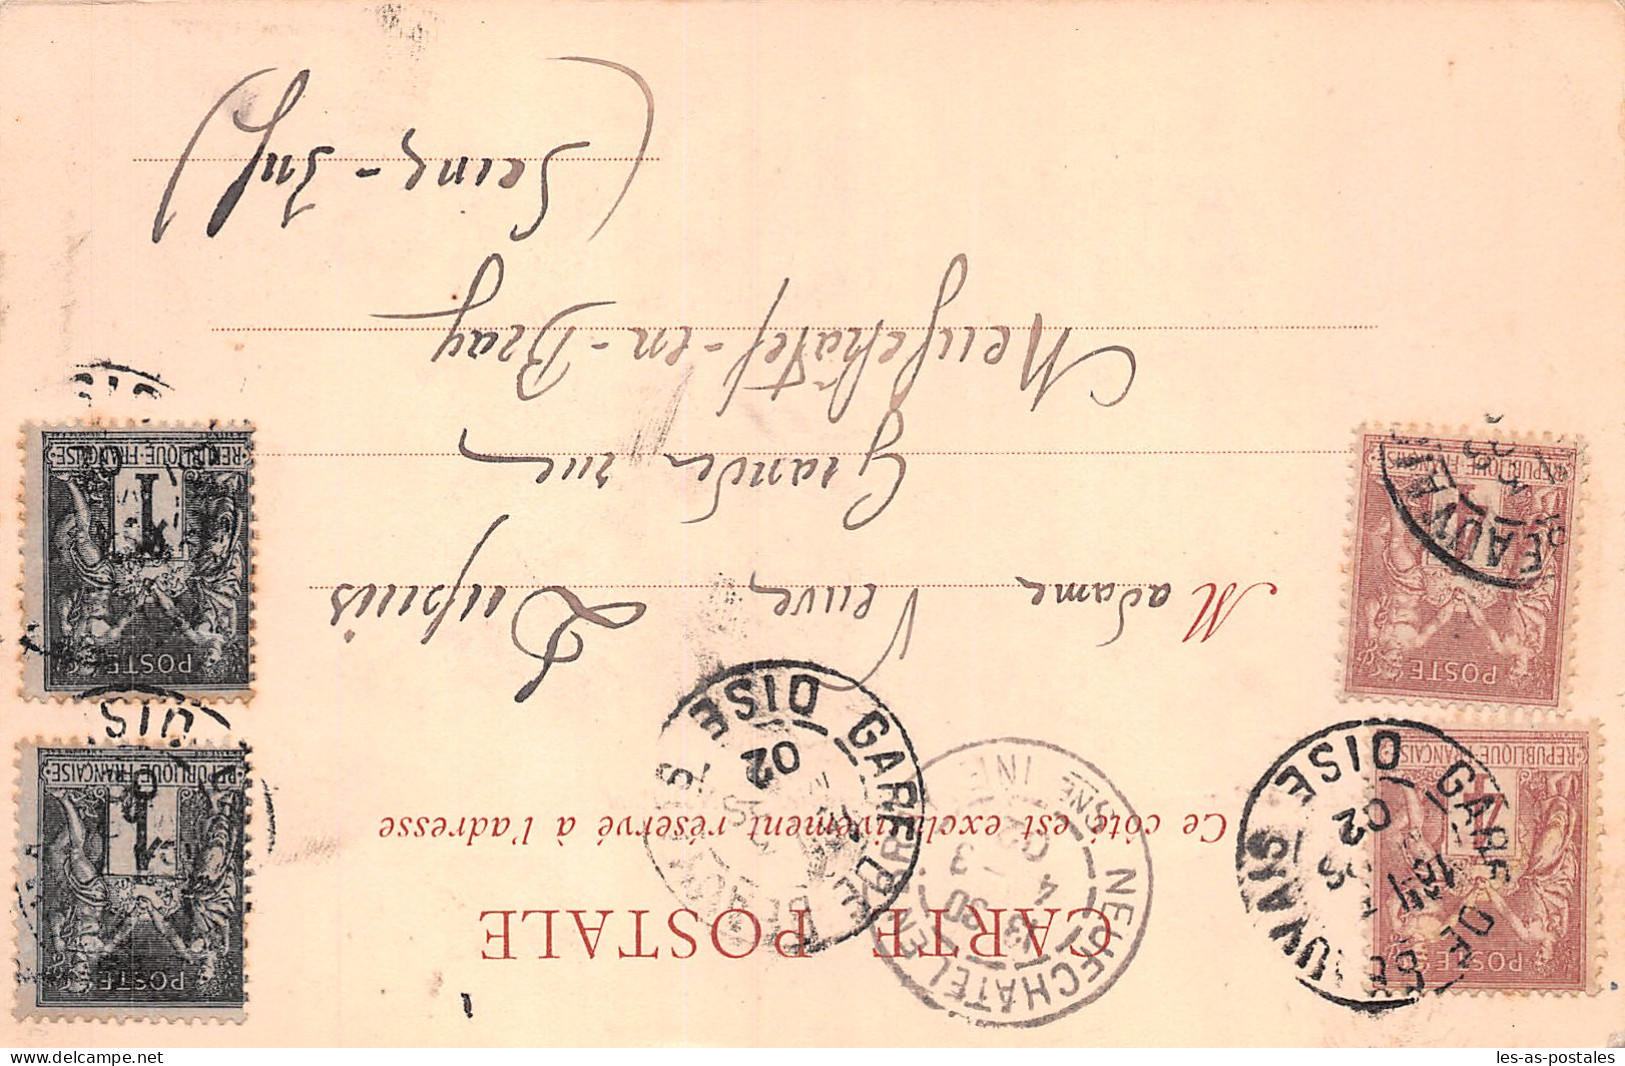 CARTE POSTALE
Ce côté est exclusivement réservé à l'adresse
Madame Veuve Dupuis
Grande rue
Neufchâtel-en-Bray
(Seine-Inf)
POSTE
1
REPUBLIQUE FRANÇAISE
POSTE
1
REPUBLIQUE FRANÇAISE
POSTES
REPUBLIQUE FRANÇAISE
POSTE
REPUBLIQUE FRANÇAISE
GARE DE BEAUVAIS
OISE
02
GARE DE BEAUVAIS
OISE
02
NEUFCHATEL
les-as-postales